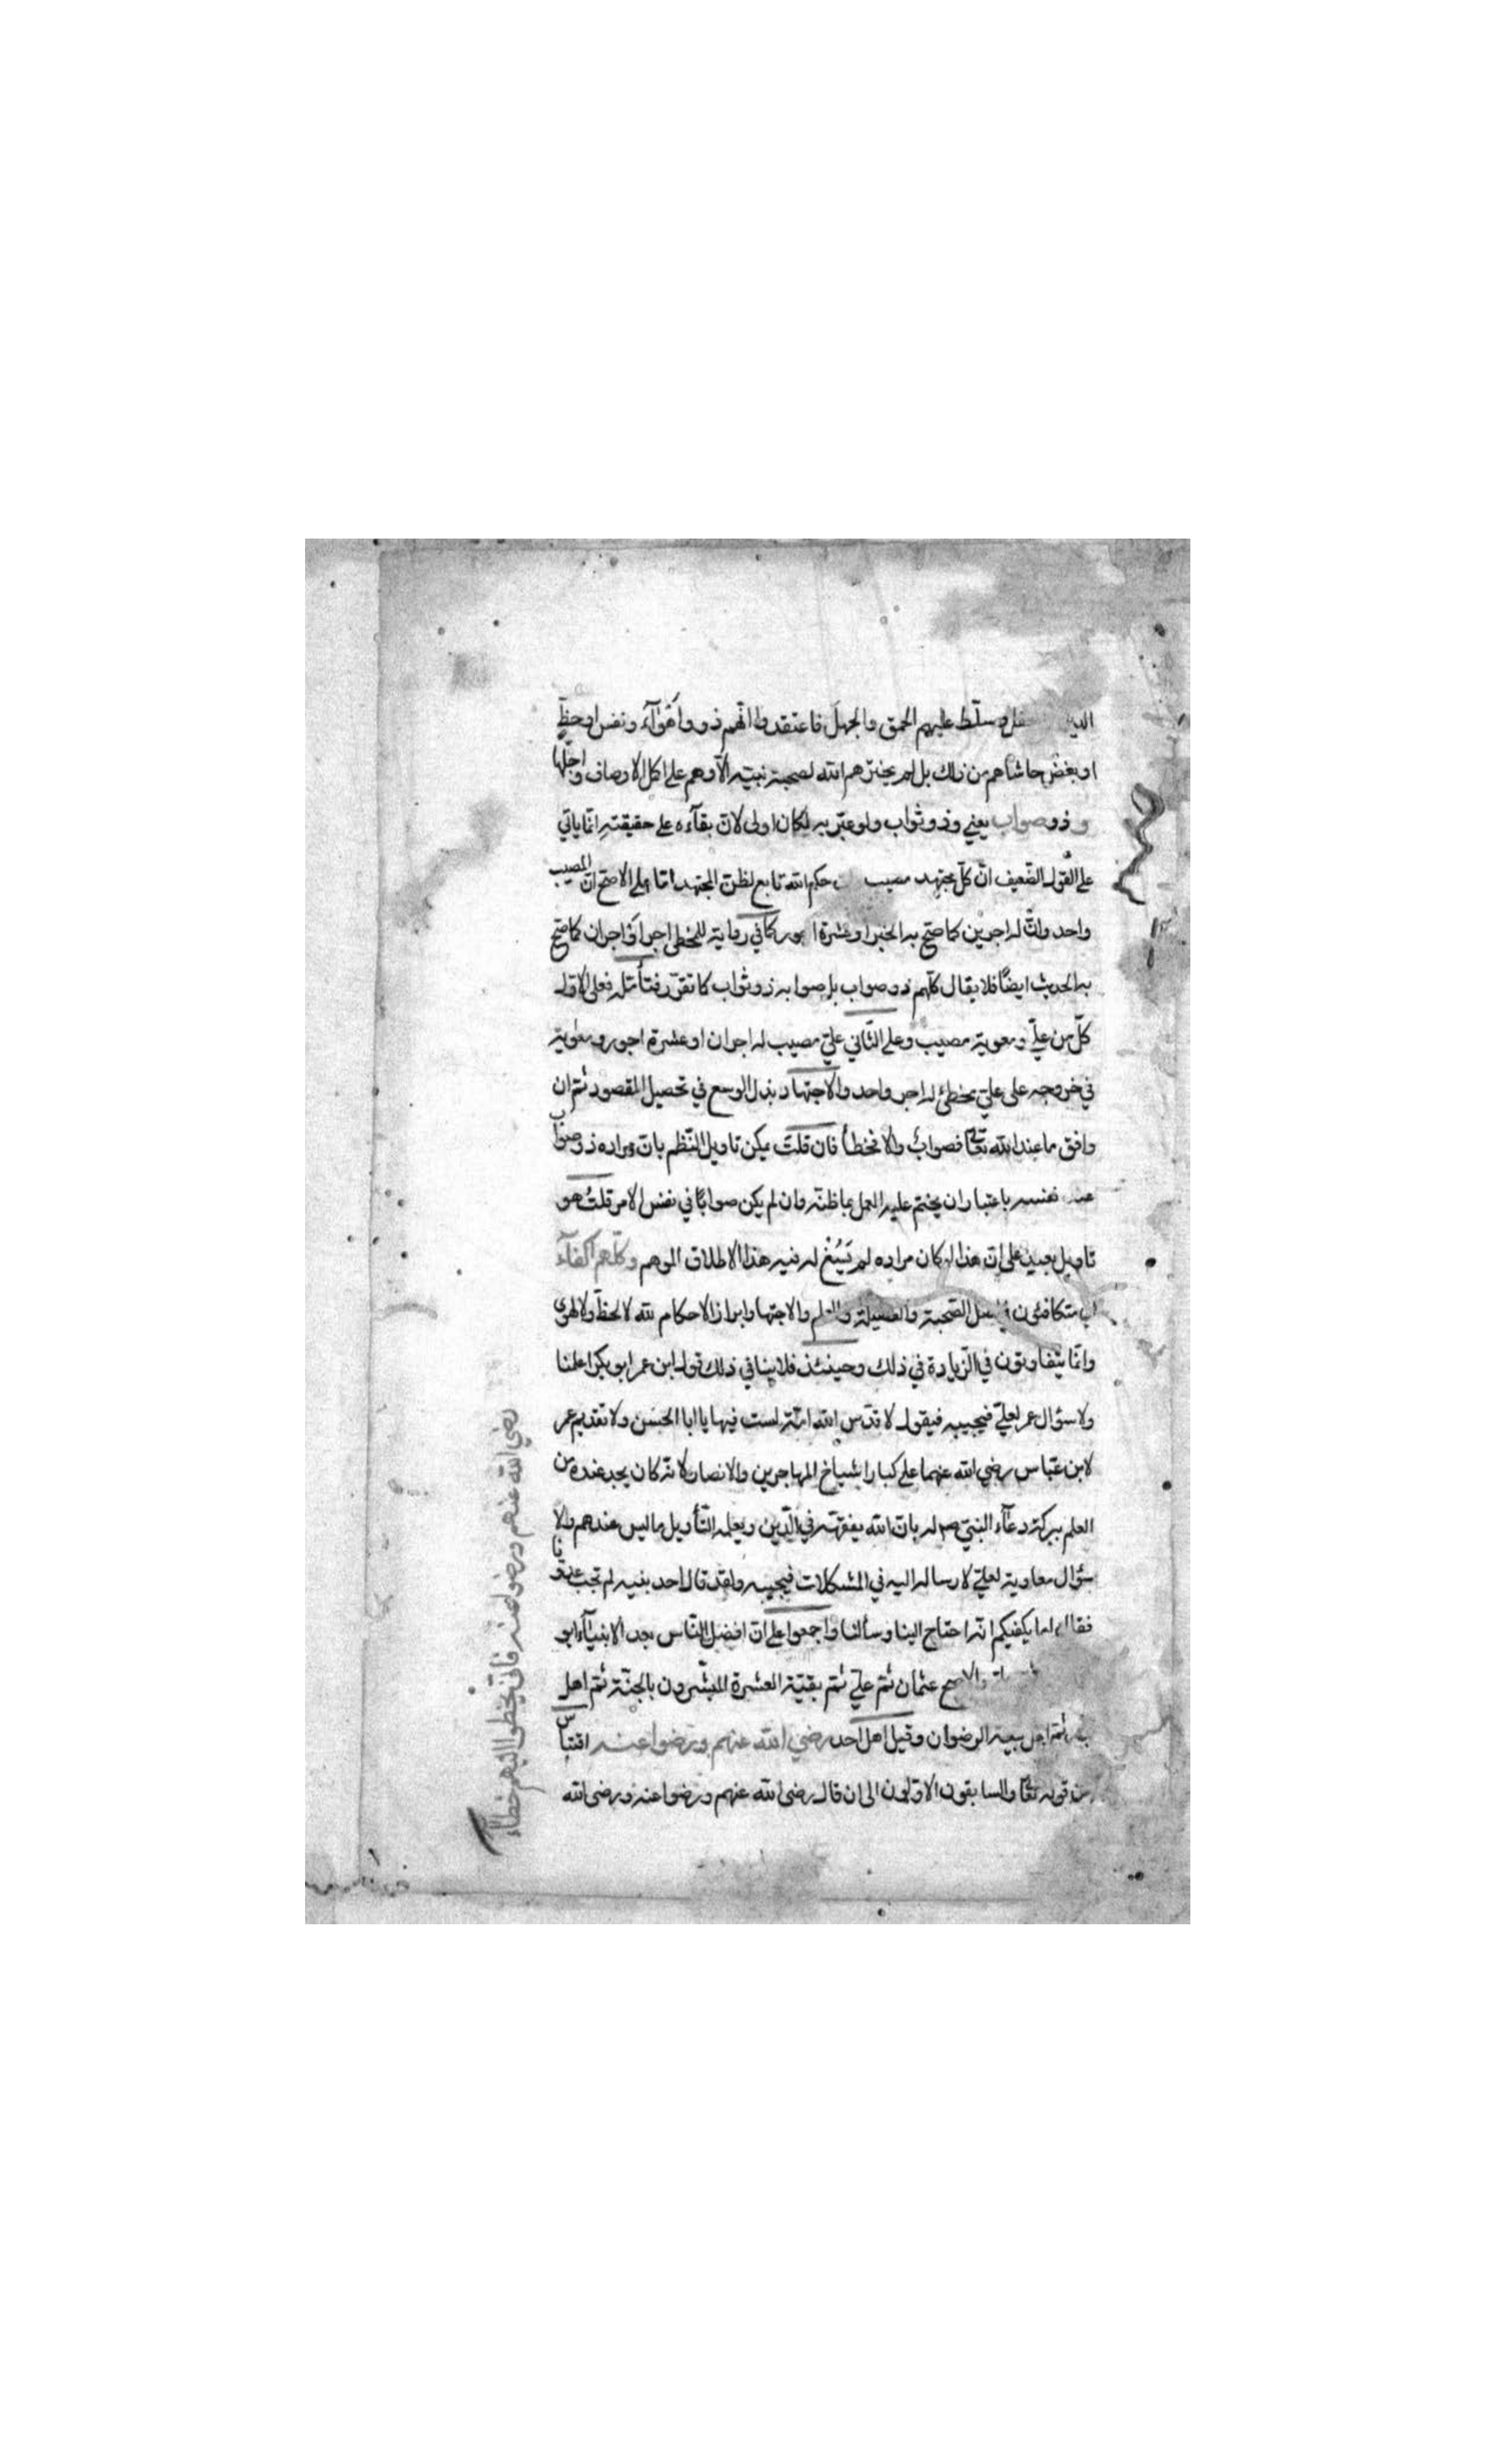 وسلّط عليهم الحمق والجهل فاعتقدوا انّهم ذووا أهْوآء ونفس او حظّ
او بغض حاشاهم من ذلك بل لم يختر هم الله لصحبة نبيّه الّا وهم على اكمل الاوصاف واجلّها
و ذو صواب يعني وذو ثواب ولو عبّر به لكان اولى لانّ بقآءه على حقيقته انّما ياتي
على القول الضّعيف انّ كلّ مجتهد مصيب حكم الله تابع لظنّ المجتهد امّا على الاصحّ انّ المصيب
واحد وانّ له اجرين كما صحّ به الخبر او عشرة اجور كما في رواية للمخطئ اجر او اجران كما صحّ
به الحديث ايضًا فلا يقال كلّهم ذو صواب بل صوابه ذو ثواب كما تقرّر فتأمّله فعلى الاوّل
كلّ من عليّ ومعوية مصيب وعلى الثّاني عليّ مصيب له اجران او عشرة اجور ومعوية
في خروجه على عليّ مخطئ له اجر واحد والاجتهاد بذل الوسع في تحصيل المقصود ثمّ ان
وافق ما عند الله تعالى فصواب والا فخطأ فان قلت يمكن تاويل النّظم بانّ مراده ذو صواب
عند نفسه باعتبار ان يحتم عليه العمل بما ظنّه وان لم يكن صوابًا في نفس الامر قلتُ هو
تاويل بعيد على انّ هذا لو كان مراده لم يَسُغْ له فيه هذا الاطلاق الموهم وكلّهم اكفآء
اي متكافئون في الصّحبة والفضيلة والعلم والاجتهاد وابراز الاحكام لله لا لحظّ ولا لهوى
وانّما يتفاوتون في الزّيادة في ذلك وحينئذ فلا ينافي ذلك قول ابن عمر ابو بكر اعلمنا
ولا سؤال عمر لعليّ فيجيبه فيقول لا قدّس الله امّة لست فيها يا ابا الحسن ولا تقديم عمر
لابن عبّاس رضي الله عنهما على كبار اشياخ المهاجرين والانصار لانّه كان يجد عنده من
العلم ببركة دعآء النبيّ صم له بانّ الله يفقّهه في الدّين ويعلمه التّأويل ما ليس عندهم ولا
سؤال معاوية لعليّ لارساله اليه في المشكلات فيجيبه ولقد قال احد بنيه لم تجب عدوّنا
فقال اما يكفيكم انّه احتاج الينا وسألنا واجمعوا على انّ افضل النّاس بعد الانبيآء ابو
والاصح عثمان ثمّ عليّ ثمّ بقيّة العشرة المبشّرون بالجنّة ثمّ اهل
ثمّ اهل بيعة الرضوان وقيل اهل احد رضي الله عنهم ورضوا عنه اقتباس
من قوله تعالى والسابقون الاوّلون الى ان قال رضي الله عنهم ورضوا عنه ورضي الله
رضي الله عنهم ورضوا عنه فانّى يخطوا اليهم خطآء